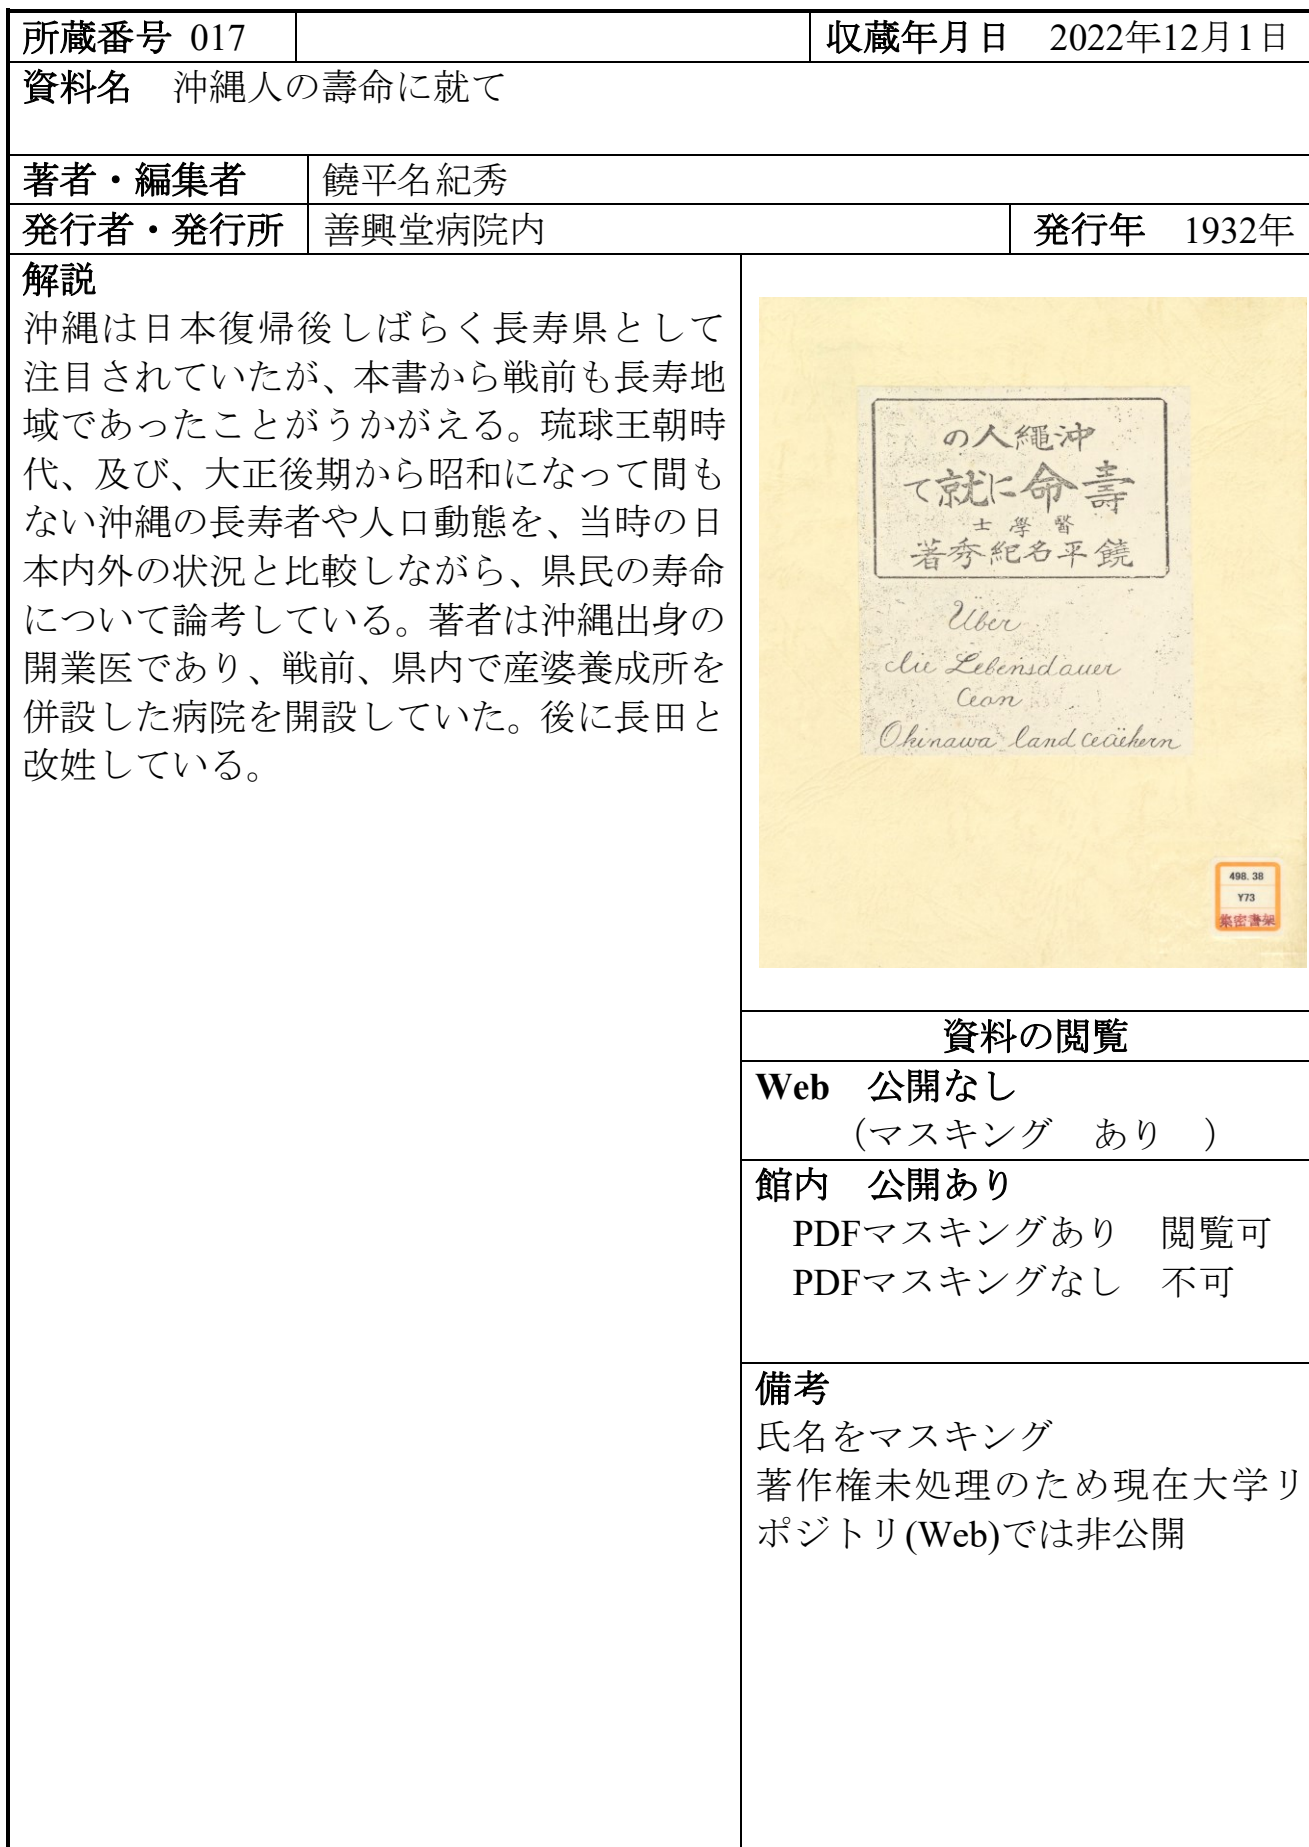 所蔵番号 017
収蔵年月日 2022年12月1日
資料名 沖縄人の壽命に就て
著者・編集者 饒平名紀秀
発行者・発行所 善興堂病院内 発行年 1932年
解説
沖縄は日本復帰後しばらく長寿県として
注目されていたが、本書から戦前も長寿地
域であったことがうかがえる。琉球王朝時
代、及び、大正後期から昭和になって間も
ない沖縄の長寿者や人口動態を、当時の日
本内外の状況と比較しながら、県民の寿命
について論考している。著者は沖縄出身の
開業医であり、戦前、県内で産婆養成所を
併設した病院を開設していた。後に長田と
改姓している。
の人繩沖
て就に命壽
士學醫
著秀紀名平饒
Über
die Lebensdauer
Okinawa
498.38
Y73
集密書架
資料の閲覧
Web 公開なし
（マスキング あり ）
館内 公開あり
PDFマスキングあり 閲覧可
PDFマスキングなし 不可
備考
氏名をマスキング
著作権未処理のため現在大学リ
ポジトリ(Web)では非公開